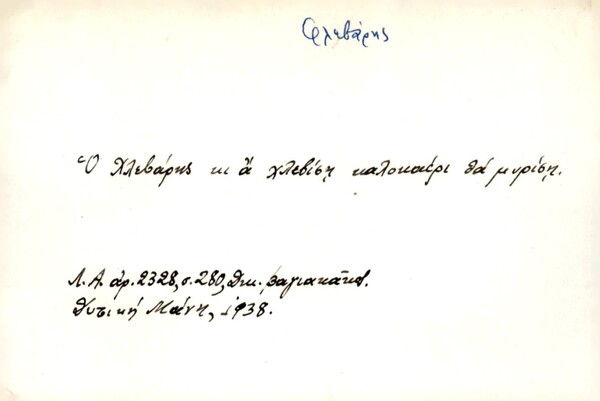 Φλεβάρης
Ὁ Χλεβάρης κι ἂ χλεβίση καλοκαίρι θά μυρίση.
Λ. Α. ἀρ. 2328, σ. 280, Δικ. Βαγιακάκου.
Δυτική Μάνη, 1938.